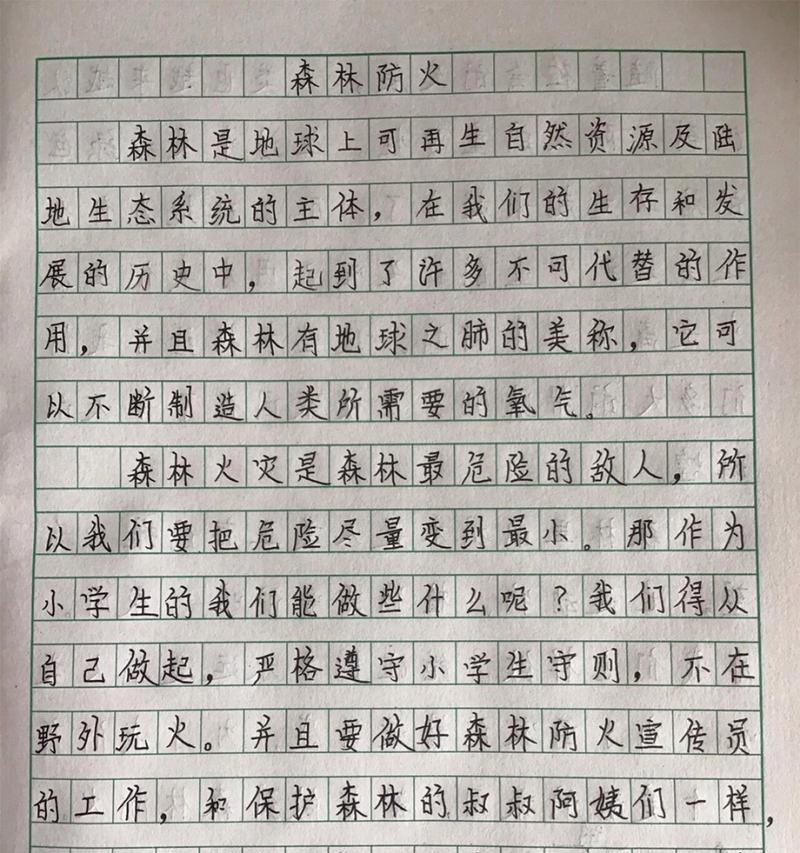 森林防火
森林是地球上可再生自然资源及陆
地生态系统的主体，在我们的生存和发
展的历史中，起到了许多不可代替的作
用，并且森林有地球之肺的美称，它可
以不断制造人类所需要的氧气。
森林火灾是森林最危险的敌人，所
以我们要把危险尽量变到最小。那作为
小学生的我们能做些什么呢？我们得从
自己做起，严格遵守小学生守则，不在
野外玩火。并且要做好森林防火宣传员
的工作，和保护森林的叔叔阿姨们一样，